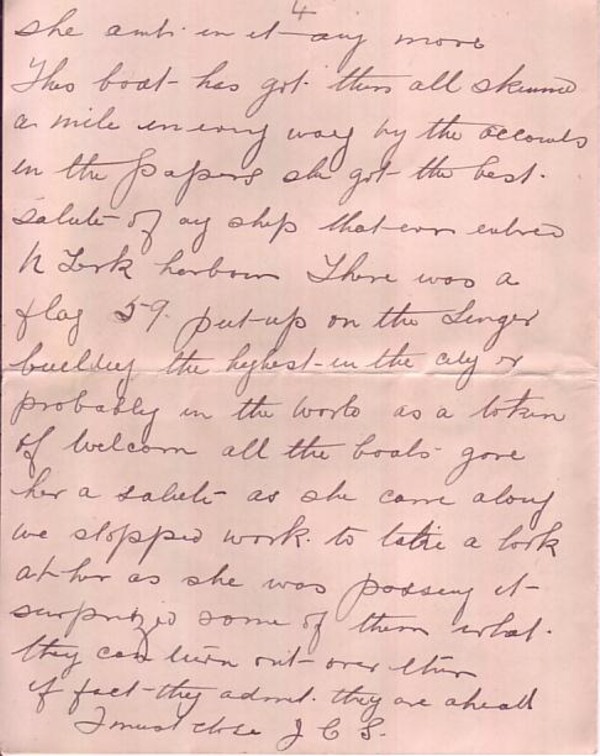 4
she aint in it any more
This boat has got them all skinned
a mile in every way by the accounts
in the papers she got the best
salute of any ship that ever entred
N York harbour There was a
flag 59 put up on the Singer
building the highest in the city or
probably in the world as a token
of welcom all the boats gave
her a salute as she came along
we stopped work to take a look
at her as she was passing it
surprized some of them what
they can turn out over ther
if fact they admit they are ahead
I must close J C S.